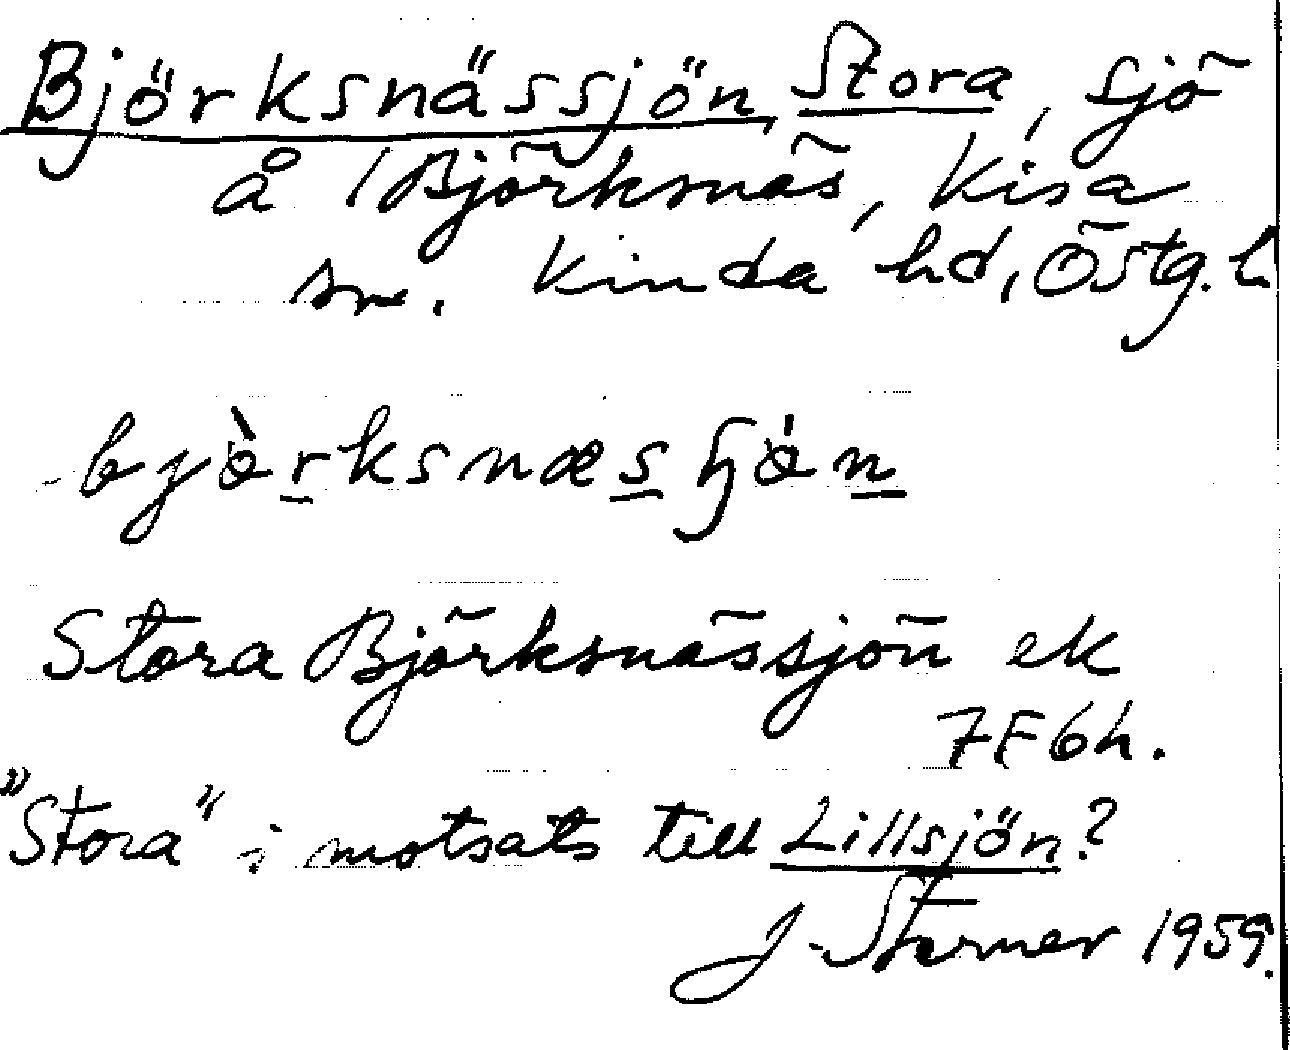 Björksnässjön, Stora, sjö
å 1 Björksnäs, Kisa
sn. Kinda hd, Östg. l.
bjò̈rksnæsʃjö́n
Stora Björksnässjön ek
7F6h.
"Stora" i motsats till Lillsjön?
J. Sterner 1959.